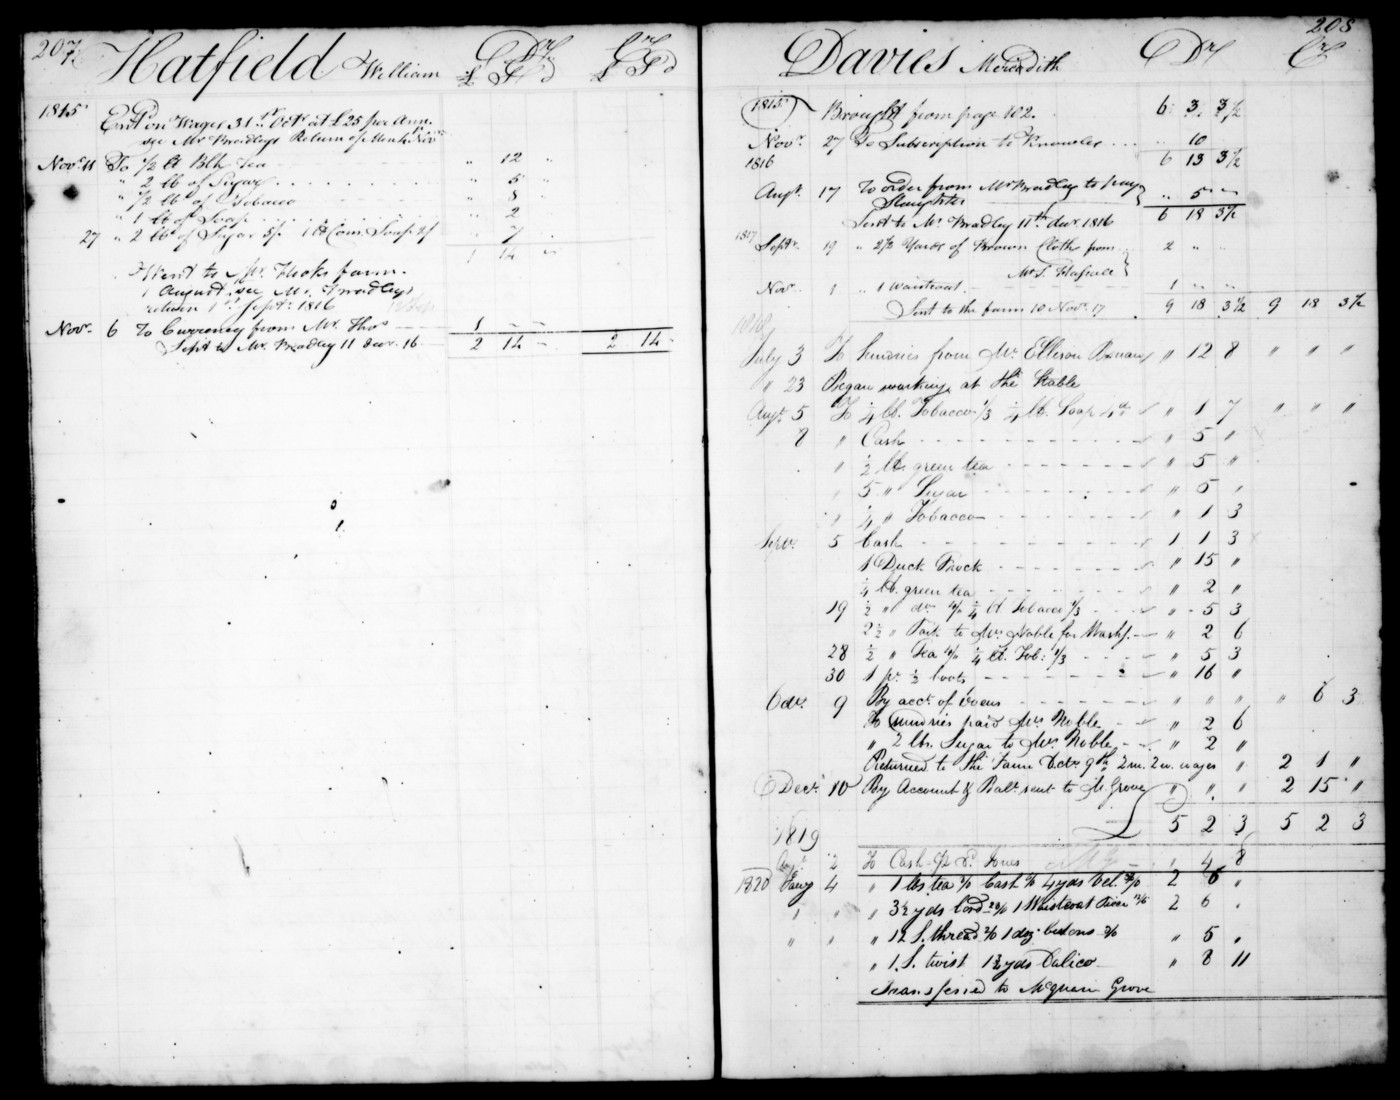 207
Hatfield William Dr Cr
£ S D £ S D
1815 Ent on Wages 31st Octr at £25 per Ann.
see Mr Bradleys Return of Month Novr
Novr 11 To 1/2 lb Blk Tea " 12 "
" 2 lb of Sugar " 5 "
" 1/2 lb of Tobacco " 8 "
" 1 lb of Soap " 2 "
27 " 2 lbs of Sugar 5/ 1 lb Com Soap 2/ " 7 "
1 14 "
Went to Mr. Hooks farm.
1 August, see Mr. Bradleys
return 1st Septr 1816
Novr 6 To Currency from Mr. Thos 1 " "
Sent to Mr. Bradley 11 decr. 16 2 14 - 2 14 -
208
Davies Meredith Dr Cr
1815 Brought from page 102. 6 3 3 1/2
Novr. 27 To Subscription to Knowles " 10 "
1816 6 13 3 1/2
Augt. 17 To order from Mr Bradley to pay
Slaughter " 5 "
Sent to Mr. Bradley 11th decr 1816 6 18 3 1/2
1817
Septr. 19 " 2 1/2 Yards of Brown Cloth from 2 " "
Novr. 1 " 1 Waistcoat 1 " "
Sent to the farm 10 Novr. 17 9 18 3 1/2 9 18 3 1/2
1818
July 3 To Sundries from Mr Ellison " 12 8 " " "
" 23 Began working at the Stable
Augt. 5 To 1/4 lb. Tobacco 1/3 1/4 lb. Soap 4d " 1 7 " " "
8 " Cash " 5 "
" 1/2 lb. green tea " 5 "
" 5 " Sugar " 5 "
" 1/4 " Tobacco " 1 3
Sepr. 5 Cash 1 1 3
1 Duck Frock " 15 "
1/4 lb. green tea " 2 "
19 1/2 " do. 4/ 1/4 lb Tobacco 1/3 " 5 3
2 1/2 " to Mrs Noble for Wash. " 2 6
28 1/2 " Tea 4/ 1/4 lb. Tob: 1/3 " 5 3
30 1 pr. 1/2 boots " 16 "
Octr. 9 By acct. of " " " " 6 3
To Sundries paid Mrs Noble " 2 6
" 2 lbs. Sugar to Mrs Noble " 2 "
Returned to the Farm Octr 9th 2 m. 2 w. wages " 2 1 "
Decr. 10 By Account & Balce sent to M Grove " " " 2 15 "
5 2 3 5 2 3
1819
Augt. 2 To Cash Jones " 4 8
1820 Jany 4 " 1 lbs tea Cash 4 yds Vel. 2 6 "
" " " 3 1/2 yds Cord 1 Waistcoat 2 6 "
" " " 12 S. thread 1 doz. butons " 5 "
" 1 S. twist 1 1/2 yds Calico " 8 11
Transferred to McQueen Grove